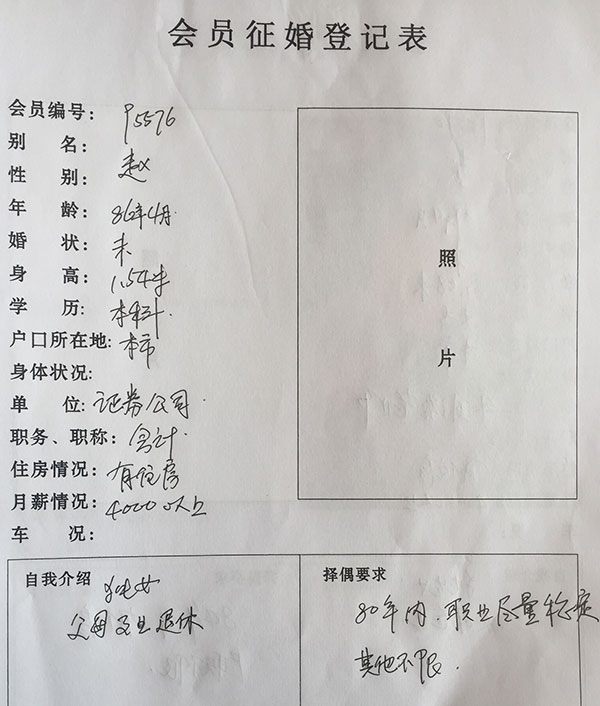 会员征婚登记表
会员编号： P5576
别　名：
性　别： 赵
年　龄： 86年4月
婚　状： 未
身　高： 1.54米
学　历: 本科
户口所在地: 本市
身体状况:
单　位: 证券公司
职务、职称： 会计
住房情况： 有住房
月薪情况： 4000以上
车　况：
照
片
自我介绍 独女
父母 退休
择偶要求
80年内、职业尽量稳定
其他不限.